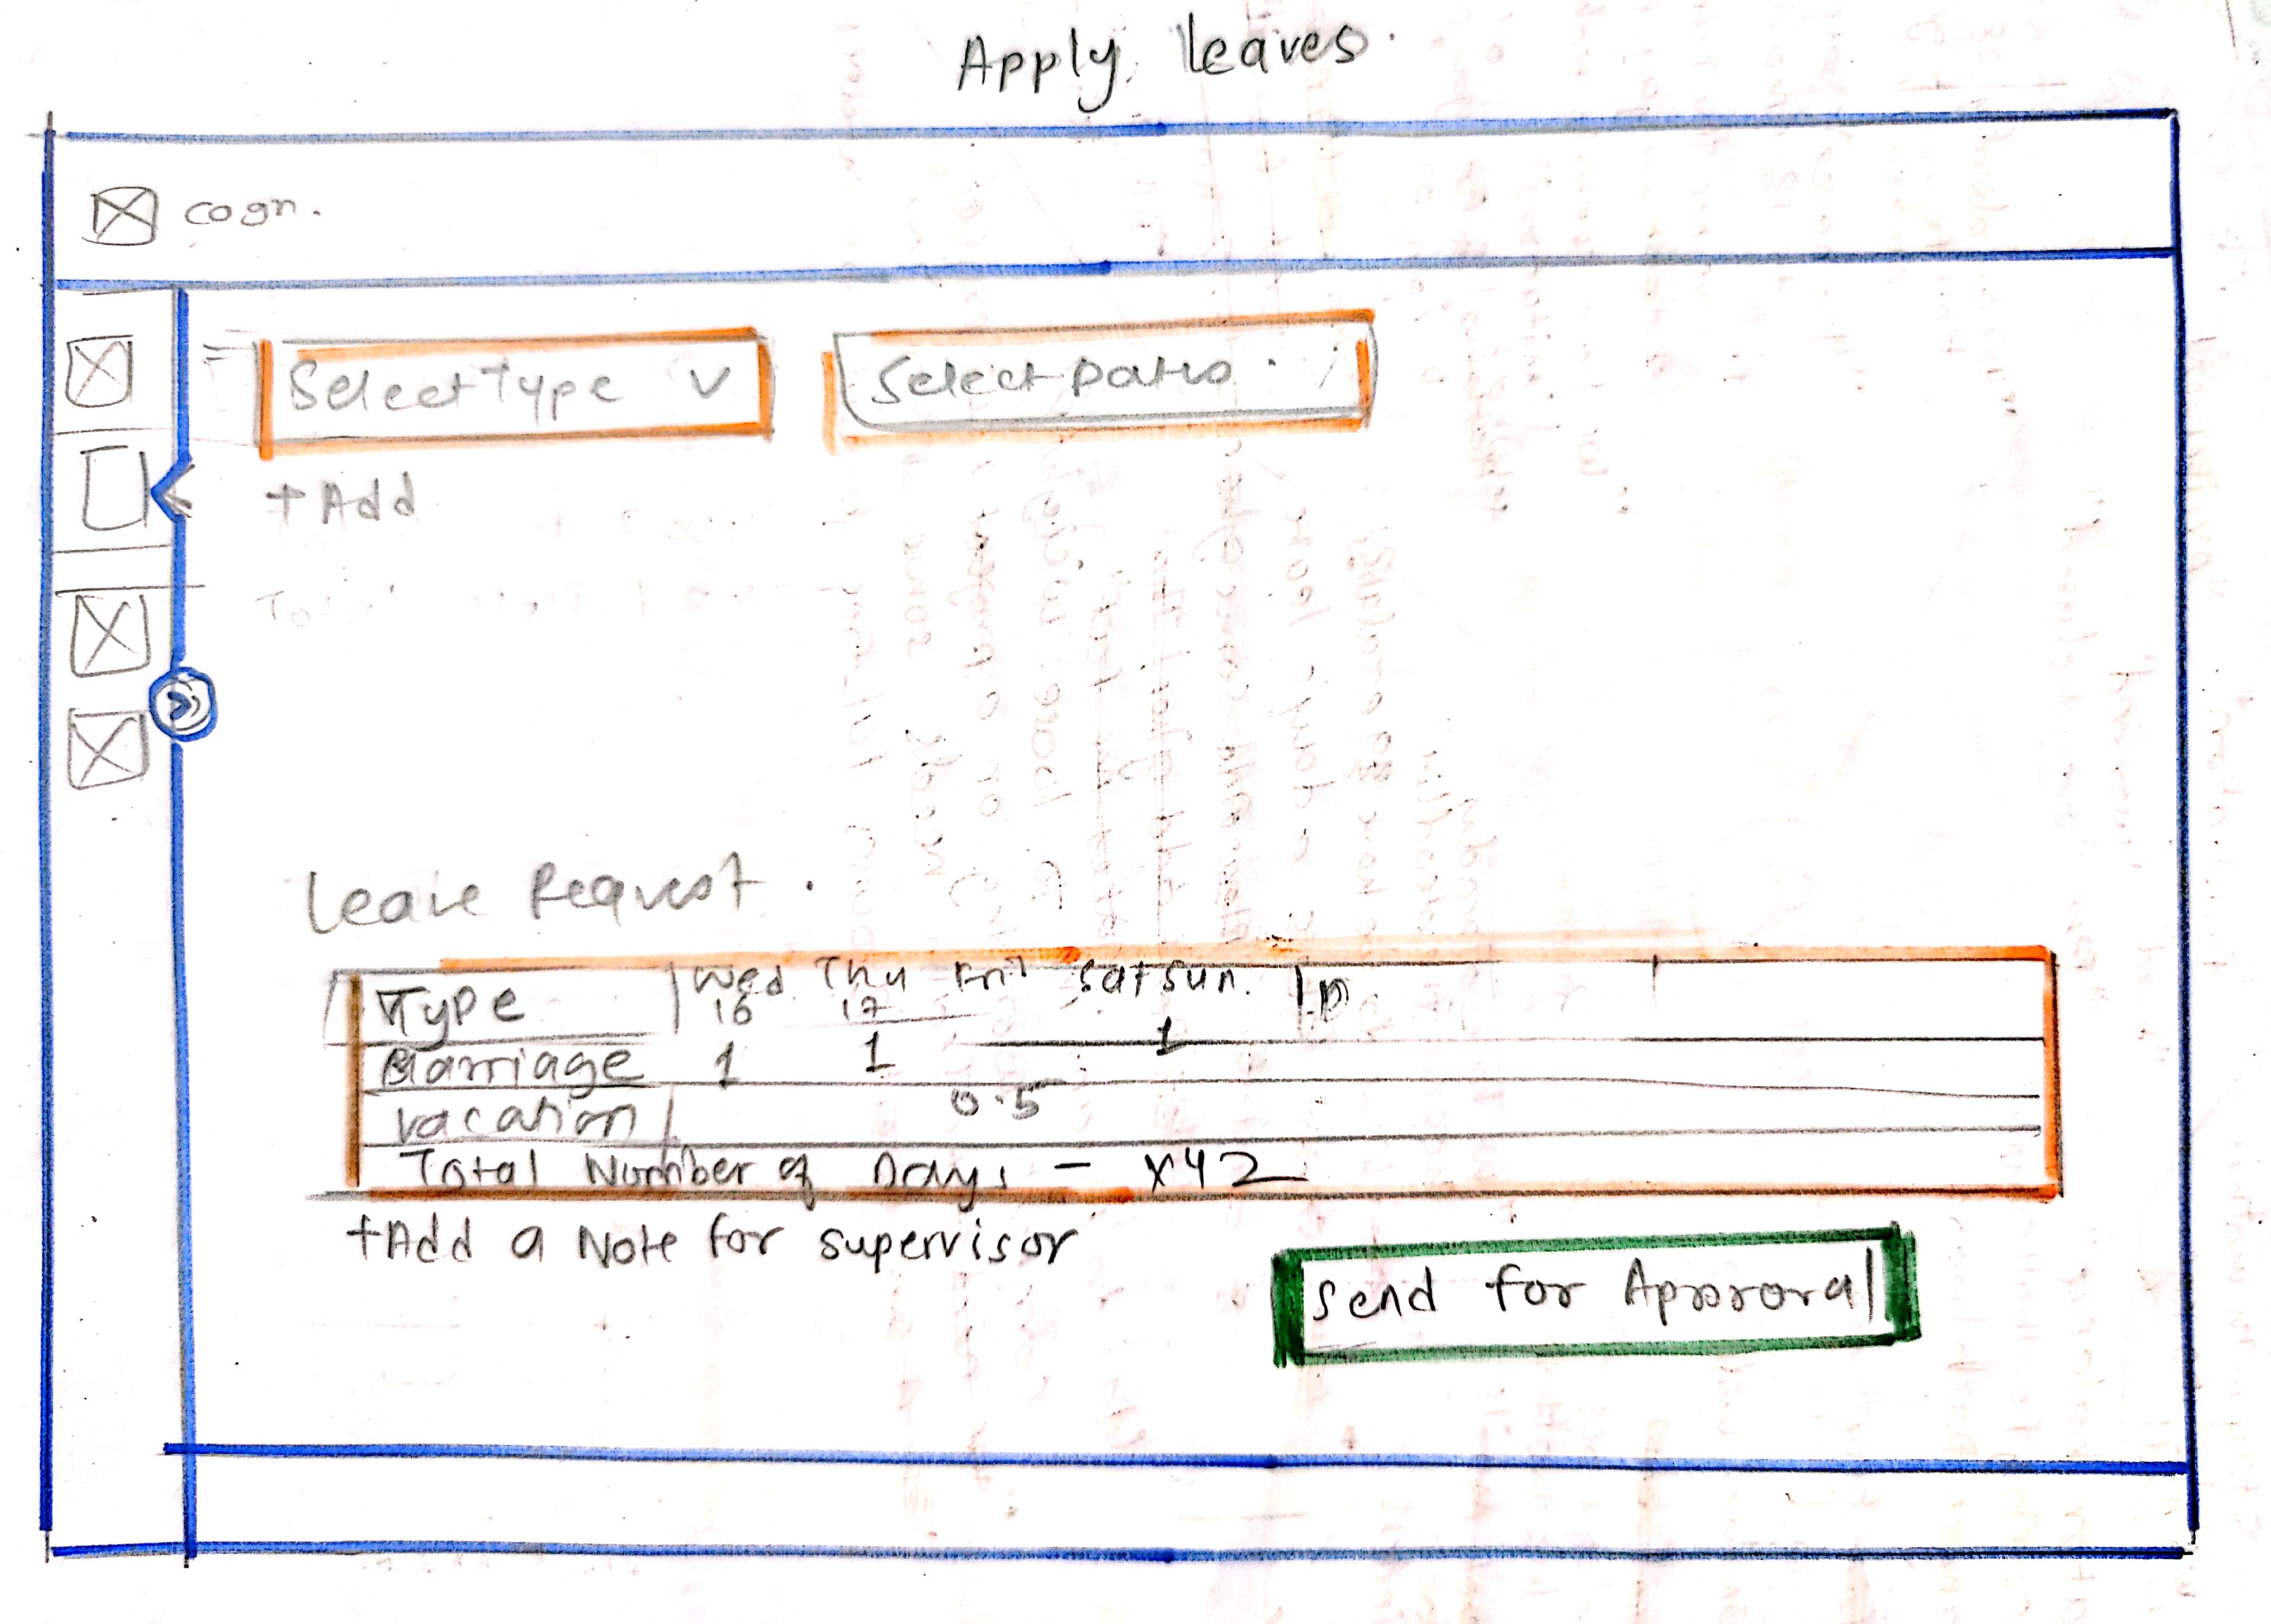 Apply Leaves.
cogn.
Select Type v
Select Dates
+ Add
Leave Request.
Type Wed Thu Fri Sat Sun.
16 17
Marriage 1 1 1
Vacation 0.5
Total Number of Days -
+Add a Note for supervisor
Send for Approval